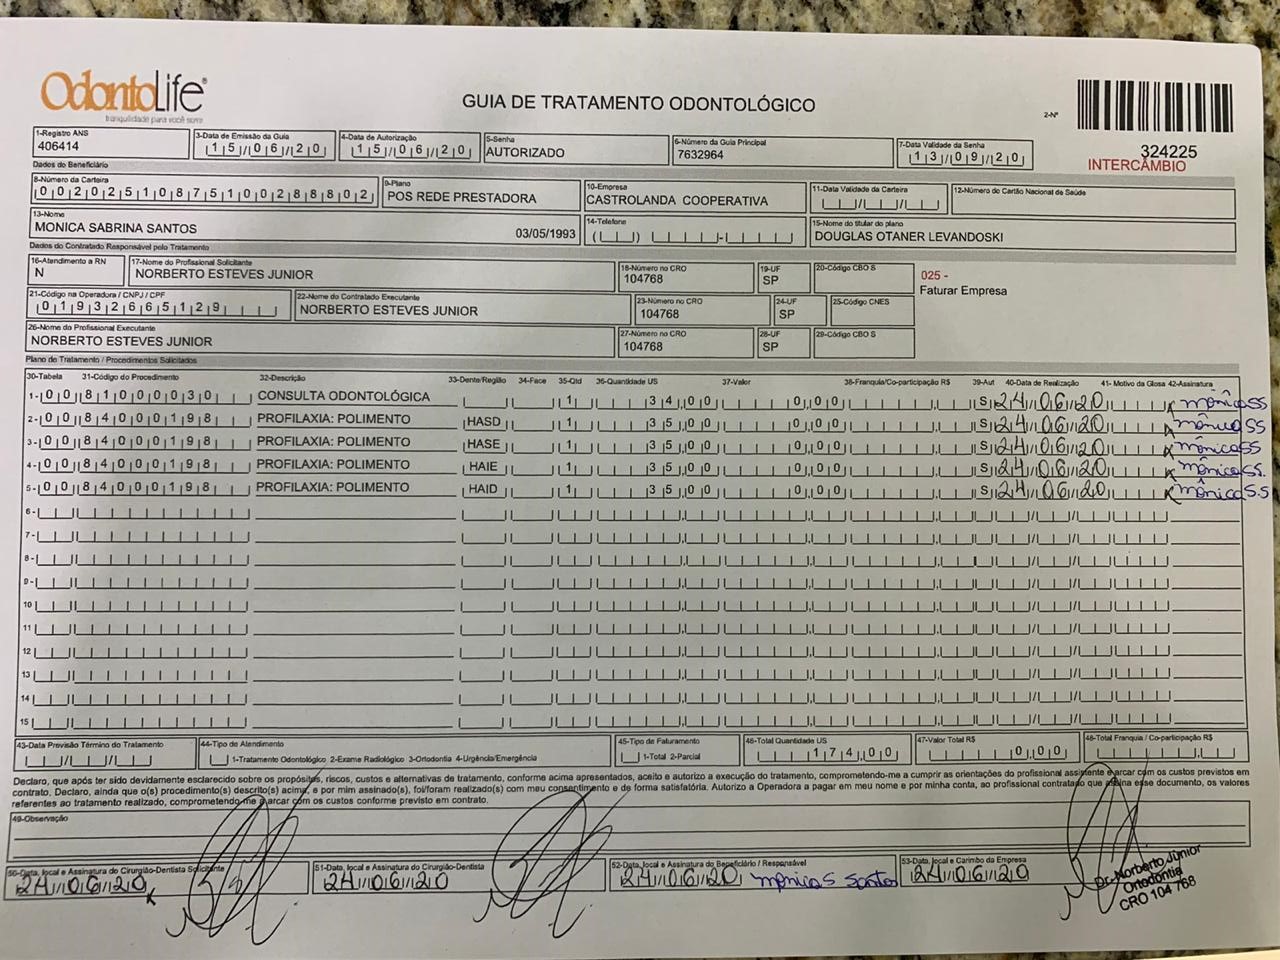 OdontoLife®
tranquilidade para você sorrir
GUIA DE TRATAMENTO ODONTOLÓGICO
2-Nº
324225
INTERCÂMBIO
1-Registro ANS
406414
3-Data de Emissão da Guia
15/06/20
4-Data de Autorização
15/06/20
5-Senha
AUTORIZADO
6-Número da Guia Principal
7632964
7-Data Validade da Senha
13/09/20
Dados do Beneficiário
8-Número da Carteira
00202510875100288802
9-Plano
POS REDE PRESTADORA
10-Empresa
CASTROLANDA COOPERATIVA
11-Data Validade da Carteira
12-Número do Cartão Nacional de Saúde
13-Nome
MONICA SABRINA SANTOS 03/05/1993
14-Telefone
15-Nome do titular do plano
DOUGLAS OTANER LEVANDOSKI
Dados do Contratado Responsável pelo Tratamento
16-Atendimento a RN
N
17-Nome do Profissional Solicitante
NORBERTO ESTEVES JUNIOR
18-Número no CRO
104768
19-UF
SP
20-Código CBO S
025 -
Faturar Empresa
21-Código na Operadora / CNPJ / CPF
01932665129
22-Nome do Contratado Executante
NORBERTO ESTEVES JUNIOR
23-Número no CRO
104768
24-UF
SP
25-Código CNES
26-Nome do Profissional Executante
NORBERTO ESTEVES JUNIOR
27-Número no CRO
104768
28-UF
SP
29-Código CBO S
Plano de Tratamento / Procedimentos Solicitados
30-Tabela 31-Código do Procedimento 32-Descrição 33-Dente/Região 34-Face 35-Qtd 36-Quantidade US 37-Valor 38-Franquia/Co-participação R$ 39-Aut 40-Data de Realização 41- Motivo da Glosa 42-Assinatura
1- 00 81000030 CONSULTA ODONTOLÓGICA 1 34,00 0,00 S 24/06/20 mônicaSS
2- 00 84000198 PROFILAXIA: POLIMENTO HASD 1 35,00 0,00 S 24/06/20 mônicaSS
3- 00 84000198 PROFILAXIA: POLIMENTO HASE 1 35,00 0,00 S 24/06/20 mônicaSS
4- 00 84000198 PROFILAXIA: POLIMENTO HAIE 1 35,00 0,00 S 24/06/20 mônicaSS.
5- 00 84000198 PROFILAXIA: POLIMENTO HAID 1 35,00 0,00 S 24/06/20 mônicaS.S
6-
7-
8-
9-
10
11
12
13
14
15
43-Data Previsão Término do Tratamento
44-Tipo de Atendimento
1-Tratamento Odontológico 2-Exame Radiológico 3-Ortodontia 4-Urgência/Emergência
45-Tipo de Faturamento
1-Total 2-Parcial
46-Total Quantidade US
174,00
47-Valor Total R$
0,00
48-Total Franquia / Co-participação R$
Declaro, que após ter sido devidamente esclarecido sobre os propósitos, riscos, custos e alternativas de tratamento, conforme acima apresentados, aceito e autorizo a execução do tratamento, comprometendo-me a cumprir as orientações do profissional assistente e arcar com os custos previstos em
contrato. Declaro, ainda que o(s) procedimento(s) descrito(s) acima, e por mim assinado(s), foi/foram realizado(s) com meu consentimento e de forma satisfatória. Autorizo a Operadora a pagar em meu nome e por minha conta, ao profissional contratado que assina esse documento, os valores
referentes ao tratamento realizado, comprometendo-me a arcar com os custos conforme previsto em contrato.
49-Observação
50-Data, local e Assinatura do Cirurgião-Dentista Solicitante
24/06/20
51-Data, local e Assinatura do Cirurgião-Dentista
24/06/20
52-Data, local e Assinatura do Beneficiário / Responsável
24/06/20 mônica S Santos
53-Data, local e Carimbo da Empresa
24/06/20
Dr. Norberto Júnior
Ortodontia
CRO 104 768